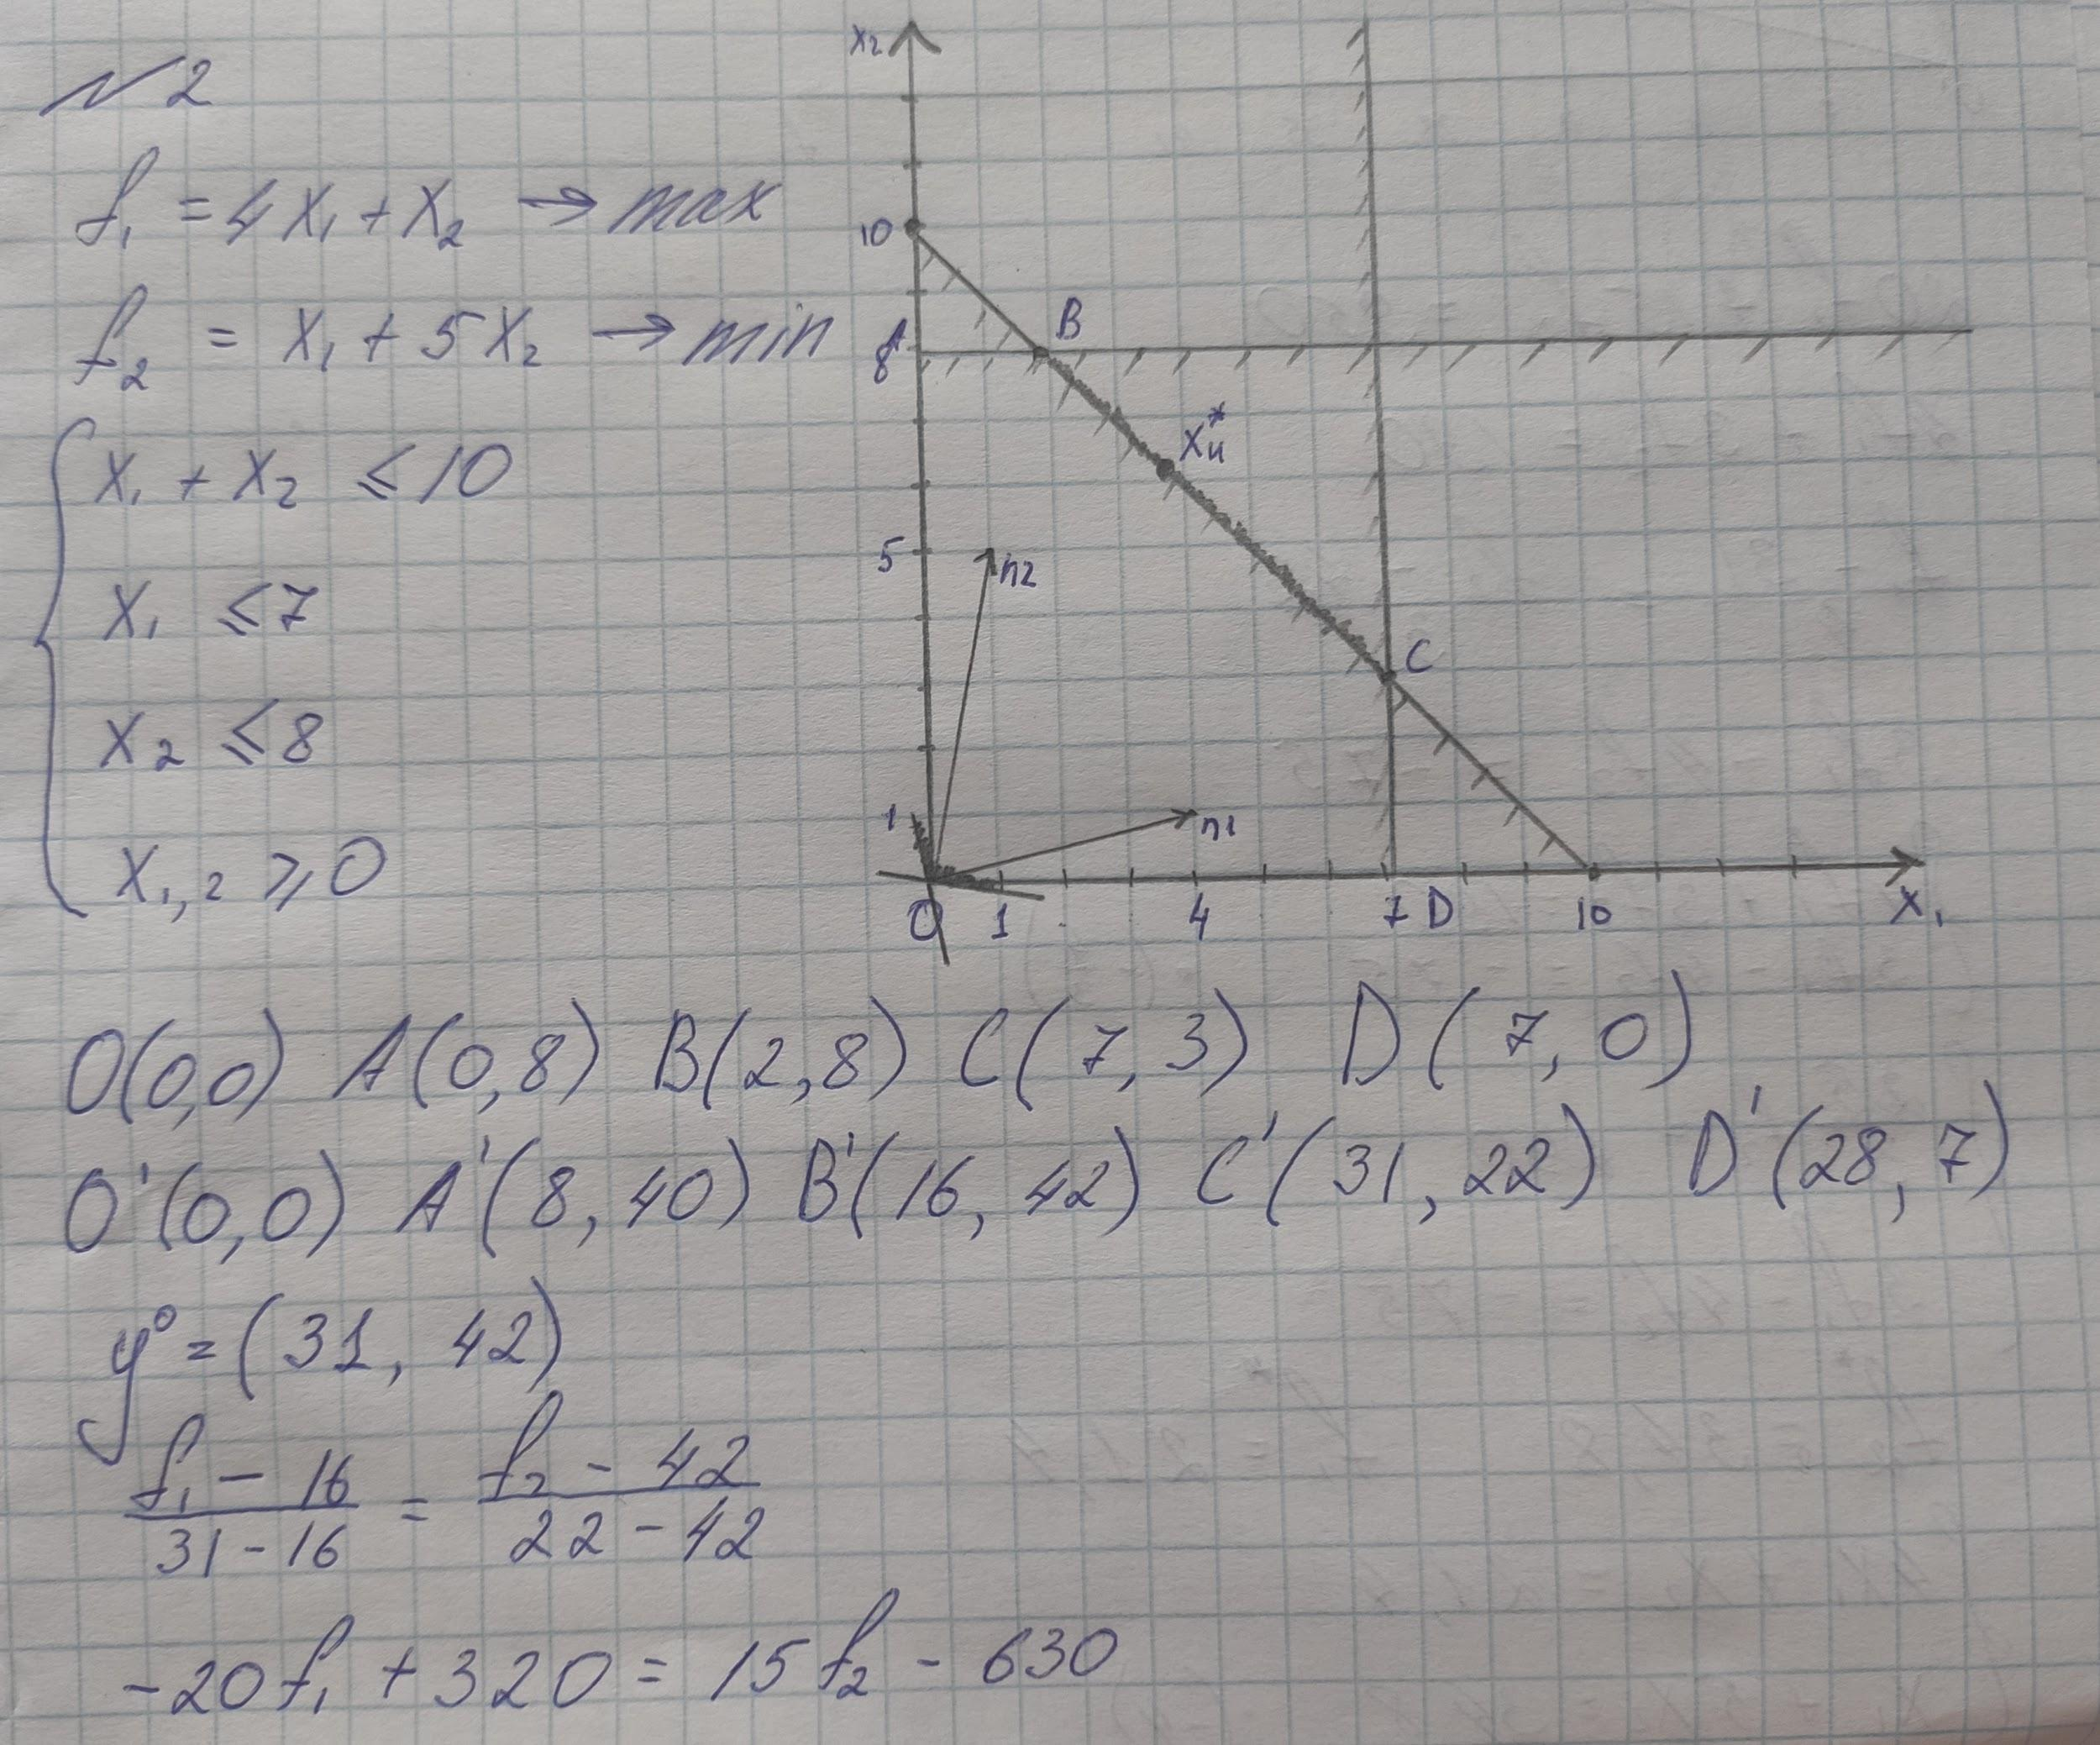 №2
f₁ = 4x₁ + x₂ → max
f₂ = x₁ + 5x₂ → min
x₁ + x₂ ≤ 10
x₁ ≤ 7
x₂ ≤ 8
x₁,₂ ≥ 0
x₂
10
A
8
B
xᵤ*
5
n2
C
1
n1
O 1 4 7 D 10 x₁
O(0,0) A(0,8) B(2,8) C(7,3) D(7,0)
O'(0,0) A'(8,40) B'(16,42) C'(31,22) D'(28,7)
y⁰ = (31, 42)
(f₁ - 16)/(31 - 16) = (f₂ - 42)/(22 - 42)
-20f₁ + 320 = 15f₂ - 630